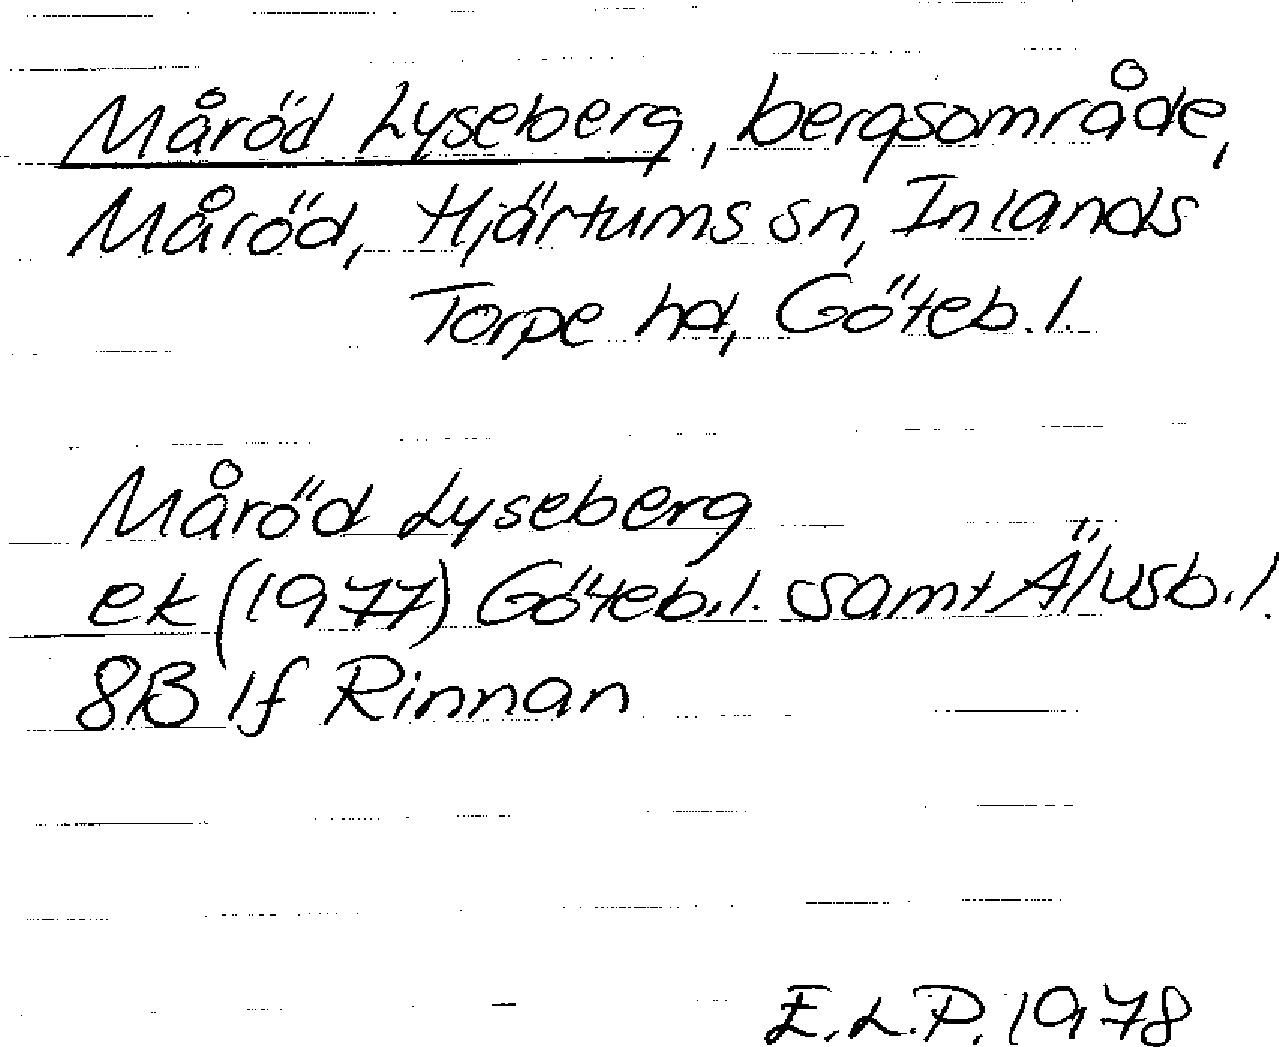 Måröd Lyseberg, bergsområde,
Måröd, Hjärtums sn, Inlands
Torpe hd, Göteb. l.
Måröd Lyseberg
ek (1977) Göteb. l. samt Älvsb. l.
8B 1f Rinnan
E.L.P. 1978